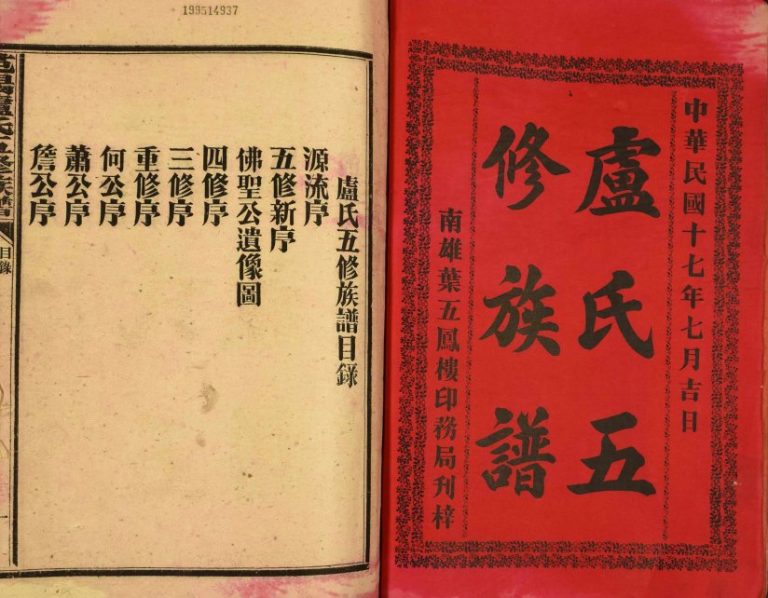 中華民國十七年七月吉日
盧氏五
修族譜
南雄葉五鳳樓印務局刊梓
199514937
盧氏五修族譜目錄
源流序
五修新序
佛聖公遺像圖
四修序
三修序
重修序
何公序
蕭公序
詹公序
盧氏五修族譜
目錄